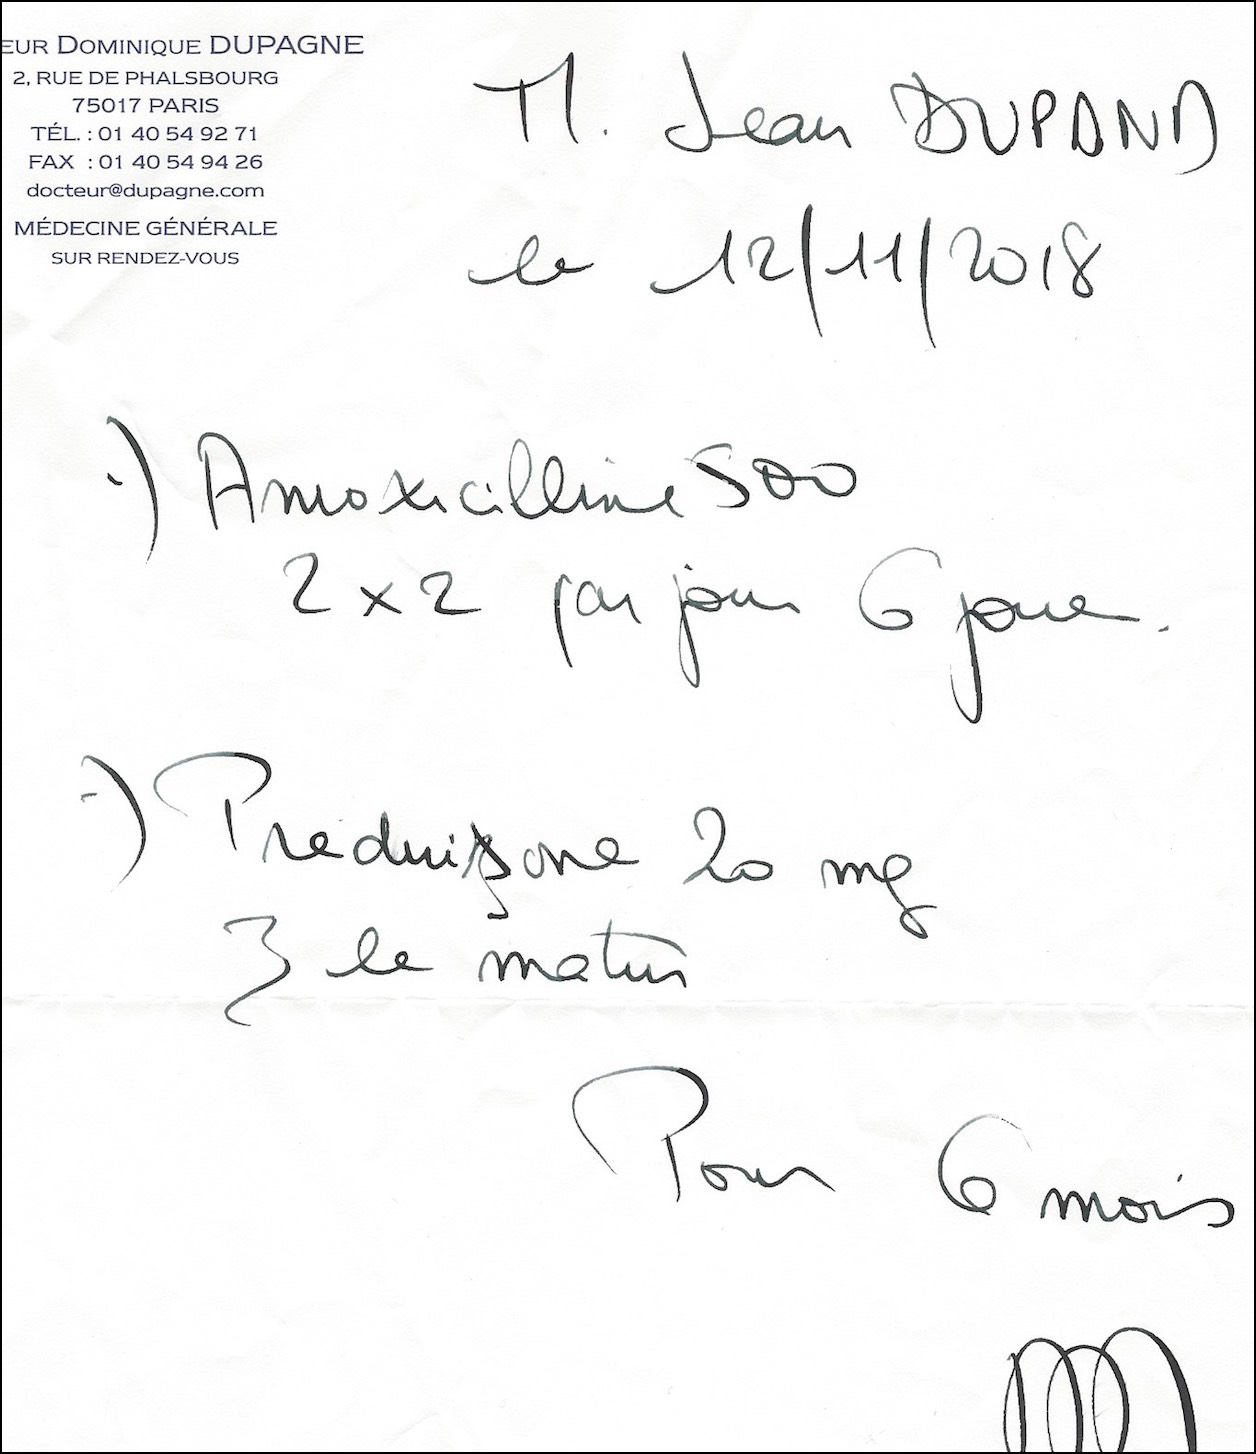 EUR DOMINIQUE DUPAGNE
2, RUE DE PHALSBOURG
75017 PARIS
TÉL. : 01 40 54 92 71
FAX : 01 40 54 94 26
docteur@dupagne.com
MÉDECINE GÉNÉRALE
SUR RENDEZ-VOUS
M. Jean DUPAND
le 12/11/2018
-) Amoxicilline 500
2 x 2 par jour 6 jours.
-) Prednisone 20 mg
3 le matin
Pour 6 mois